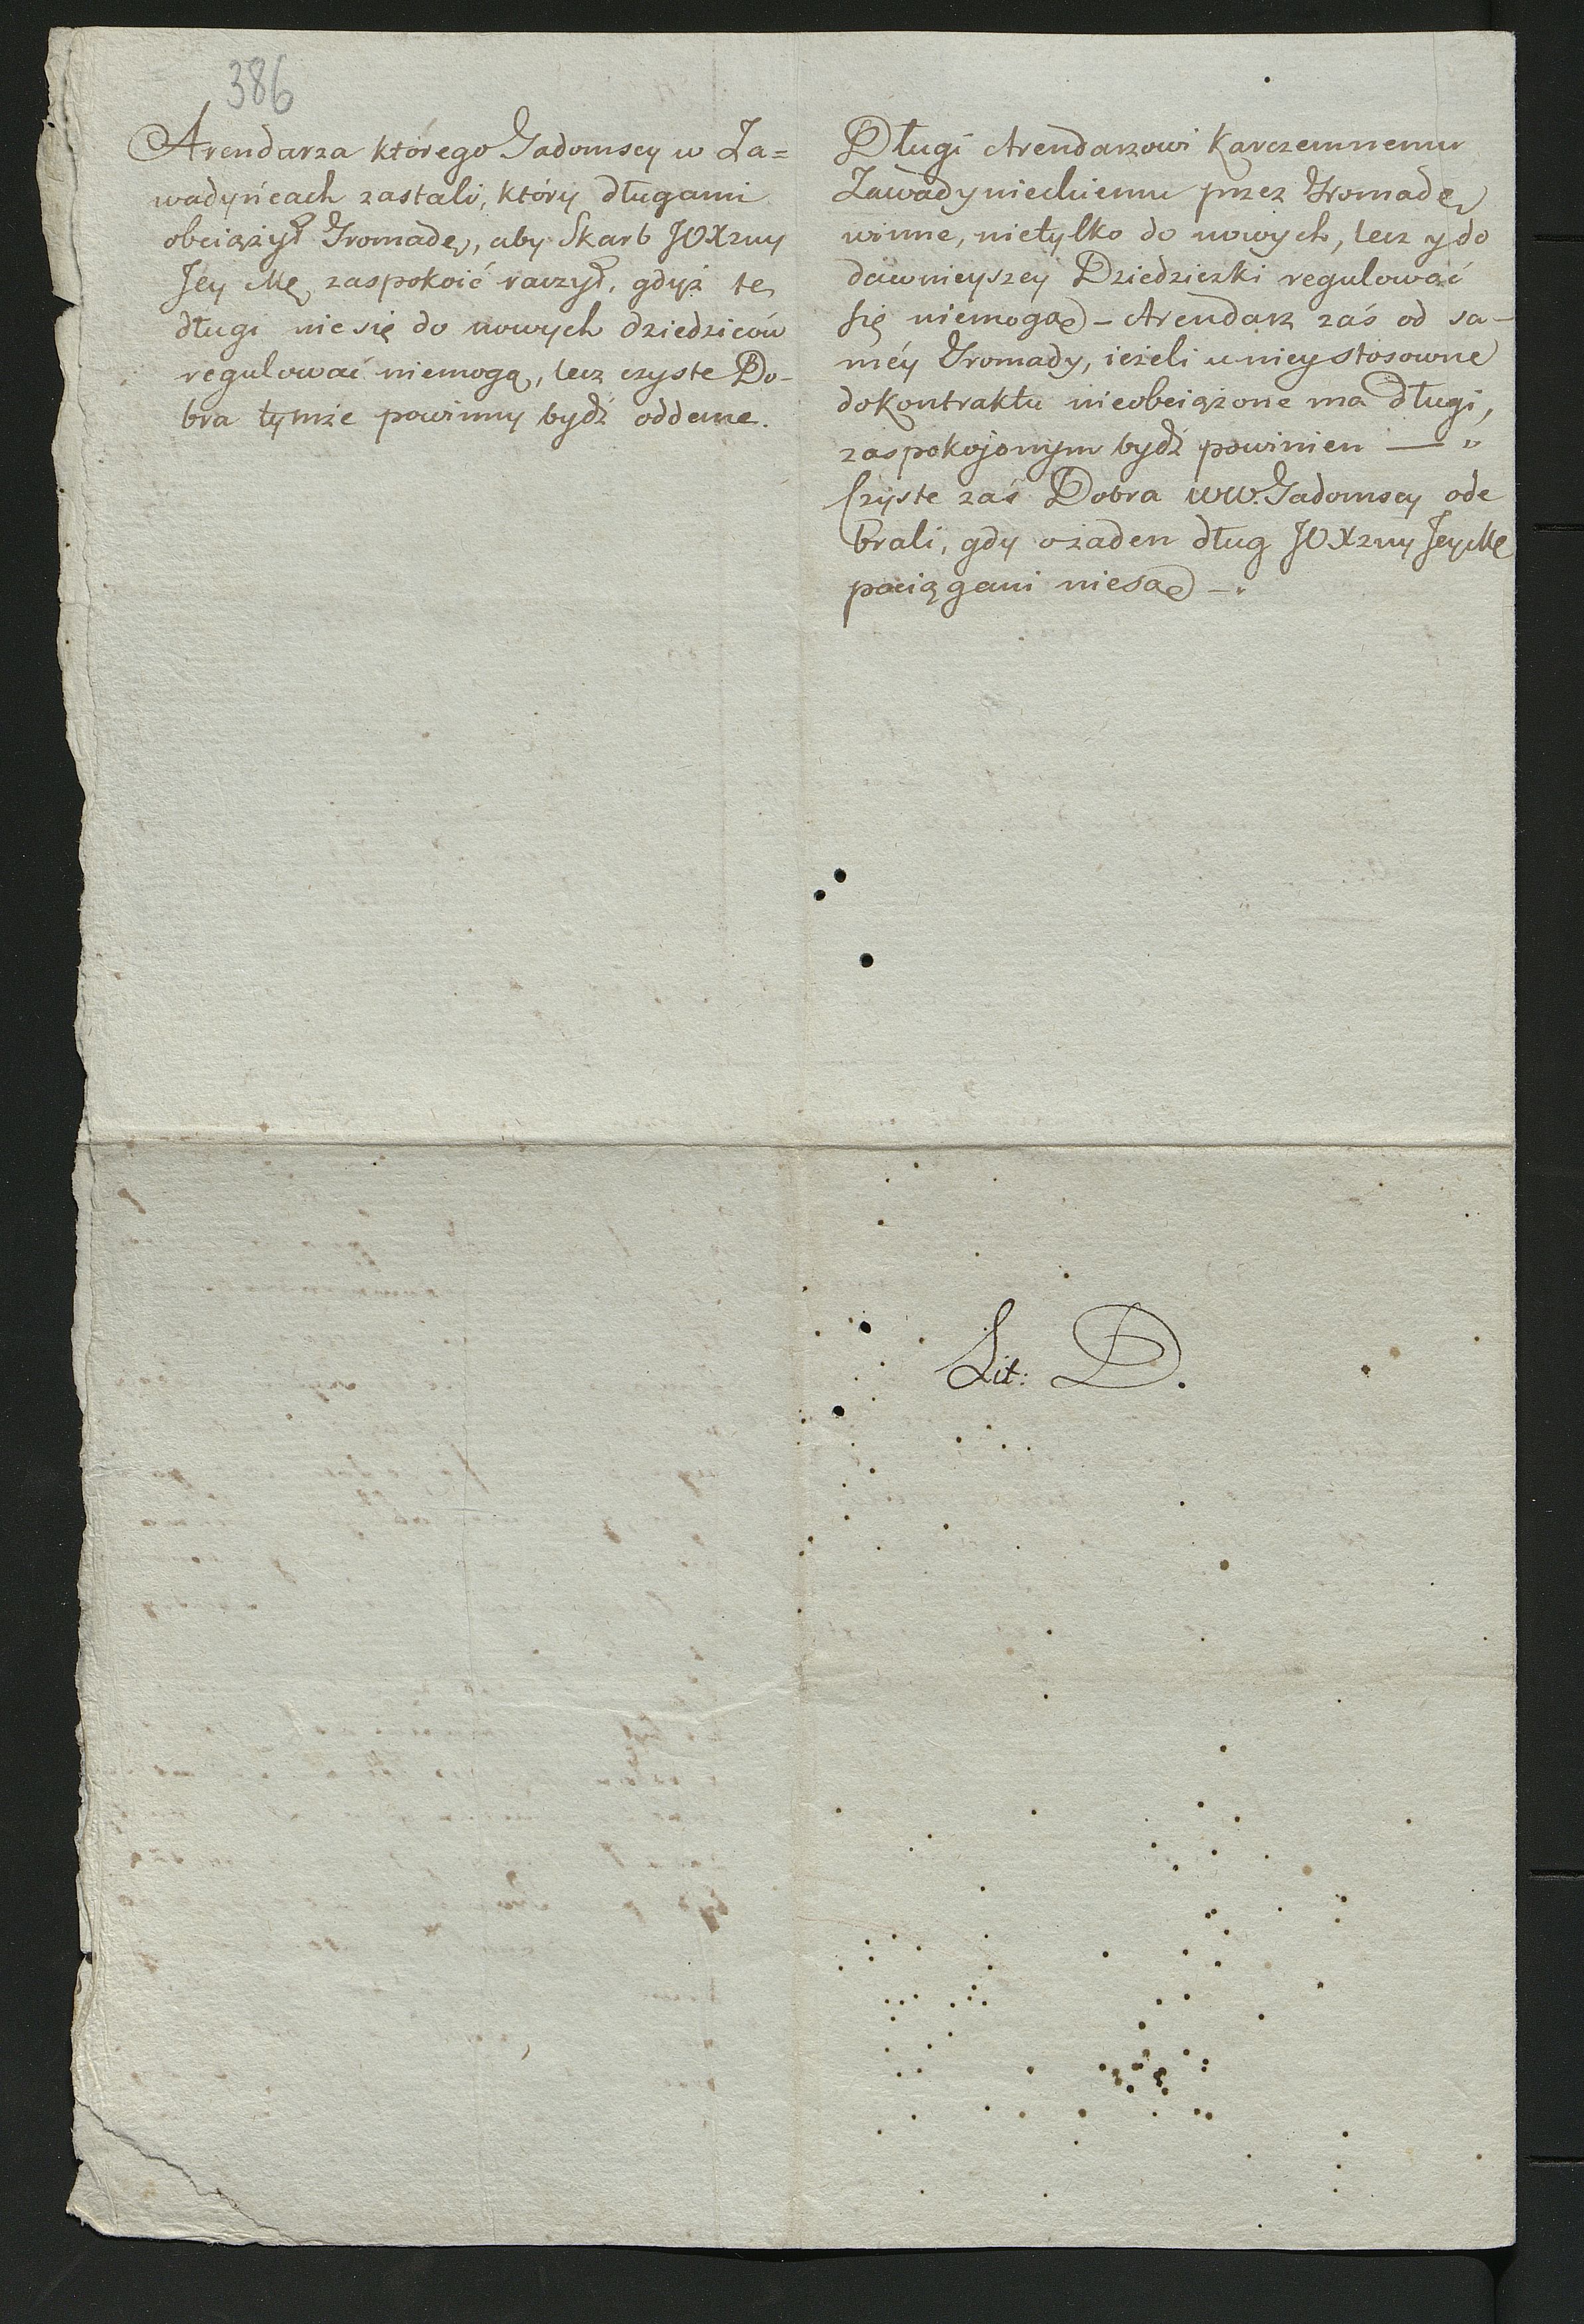 386
Arendarza którego Gadomscy w Za=
wadyńcach zastali, który długami
obciążył Gromadę, aby Skarb JOXzny
Jey Mę zaspokoić raczył, gdyż te
długi nie się do nowych dziedziców
regulować niemogą, lecz czyste Do-
bra tymże powinny bydź oddane.
Długi Arendarzowi Karczemnemu
Zawadynieckiemu przez Gromadę
winne, nietylko do nowych, lecz y do
dawnieyszey Dziedziczki regulować
się niemogą - Arendarz zaś od sa-
méy Gromady, ieżeli u niey stosowne
do kontraktu nieobciążone ma długi,
zaspokojonym bydź powinien —
Czyste zaś Dobra WW. Gadomscy ode
brali, gdy o żaden dług JOXzny Jey Mę
pociągani niesą -
Lit: D.